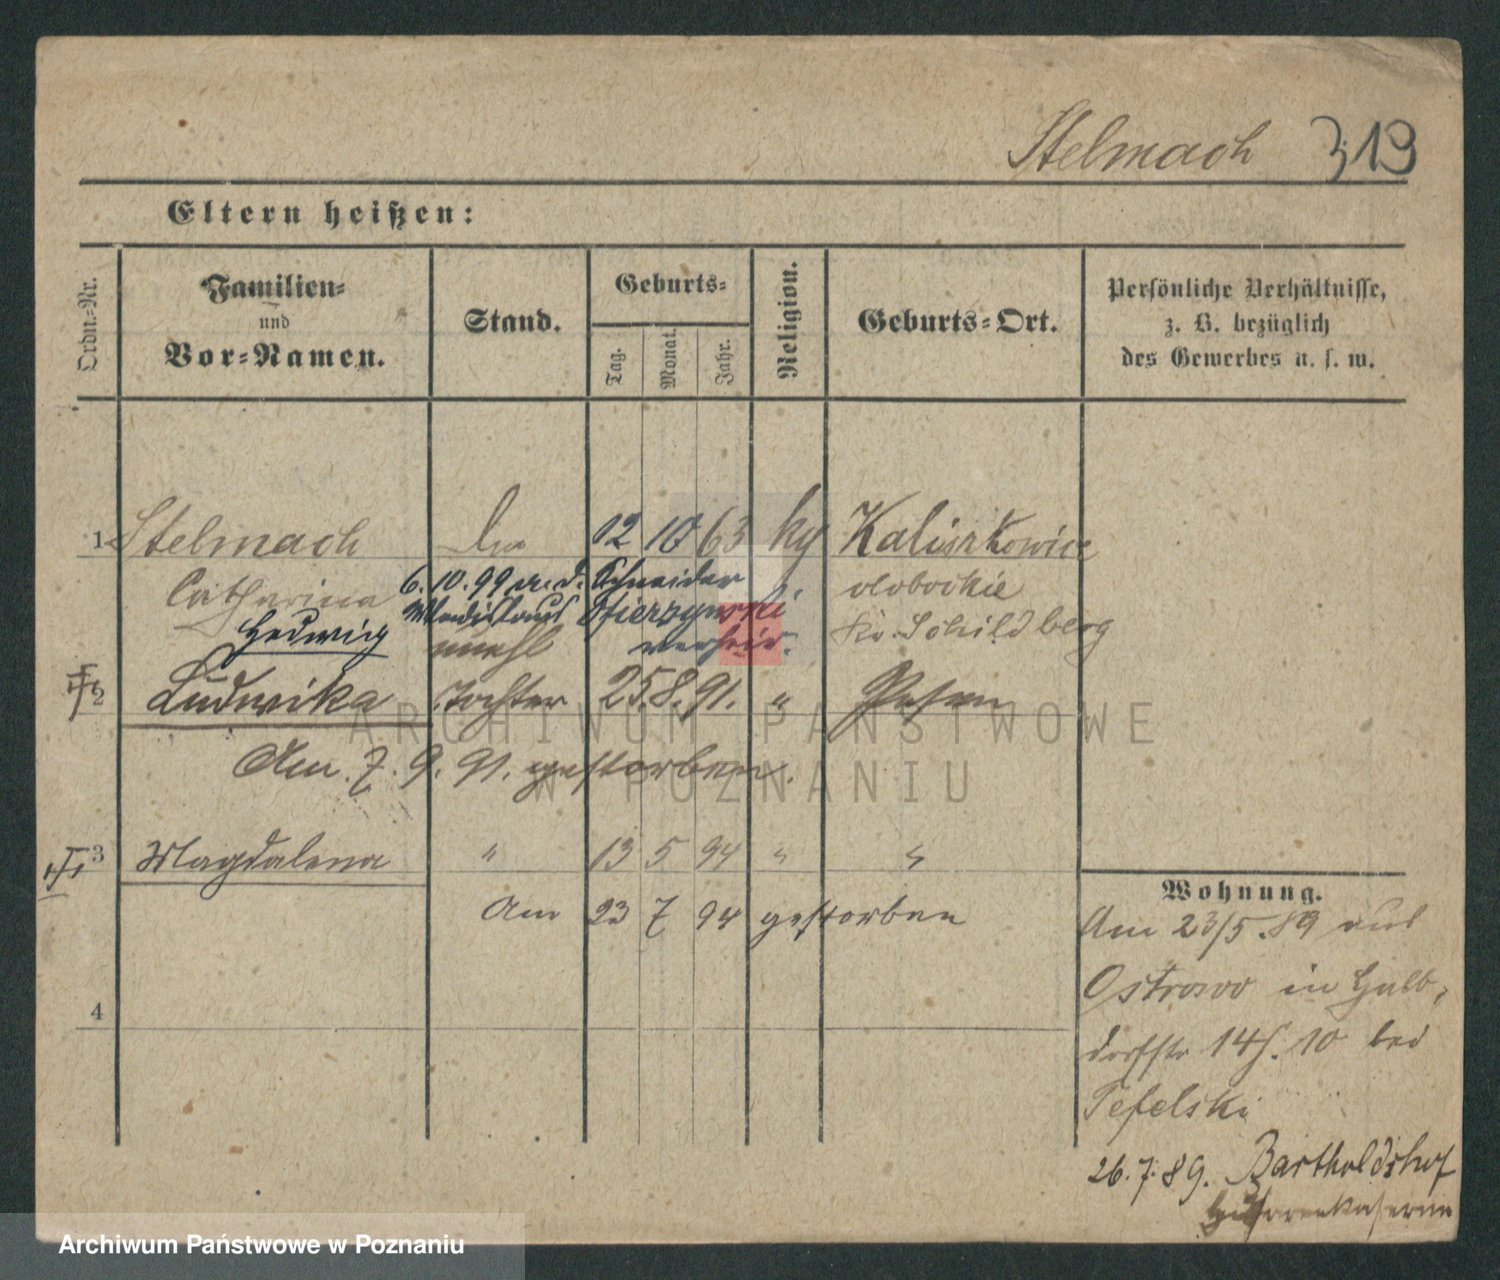 Stelmach 319
Eltern heißen:
Ordn.-Nr.
Familien-
und
Vor-Namen.
Stand.
Geburts-
Tag.
Monat.
Jahr.
Religion.
Geburts-Ort.
Persönliche Verhältnisse,
z. B. bezüglich
des Gewerbes u. s. w.
1 Stelmach 12 10 63 Kaliszkowice
Catharina 6.10.99 m. d. Schneider olobockie
Hedwig Wladislaus Kr. Schildberg
unehl verheir.
2 Ludwika Tochter 25. 8. 91. " Posen
Am 7. 9. 91. gestorben.
3 Magdalena " 13 5 94 " "
Am 23 7 94 gestorben
4
Wohnung.
Am 23/5.89 aus
Ostrowo in Halb-
dorfstr 14 10 bei
Tefelski
26.7.89. Bartholdshof
Husarenkaserne
ARCHIWUM PAŃSTWOWE
W POZNANIU
Archiwum Państwowe w Poznaniu